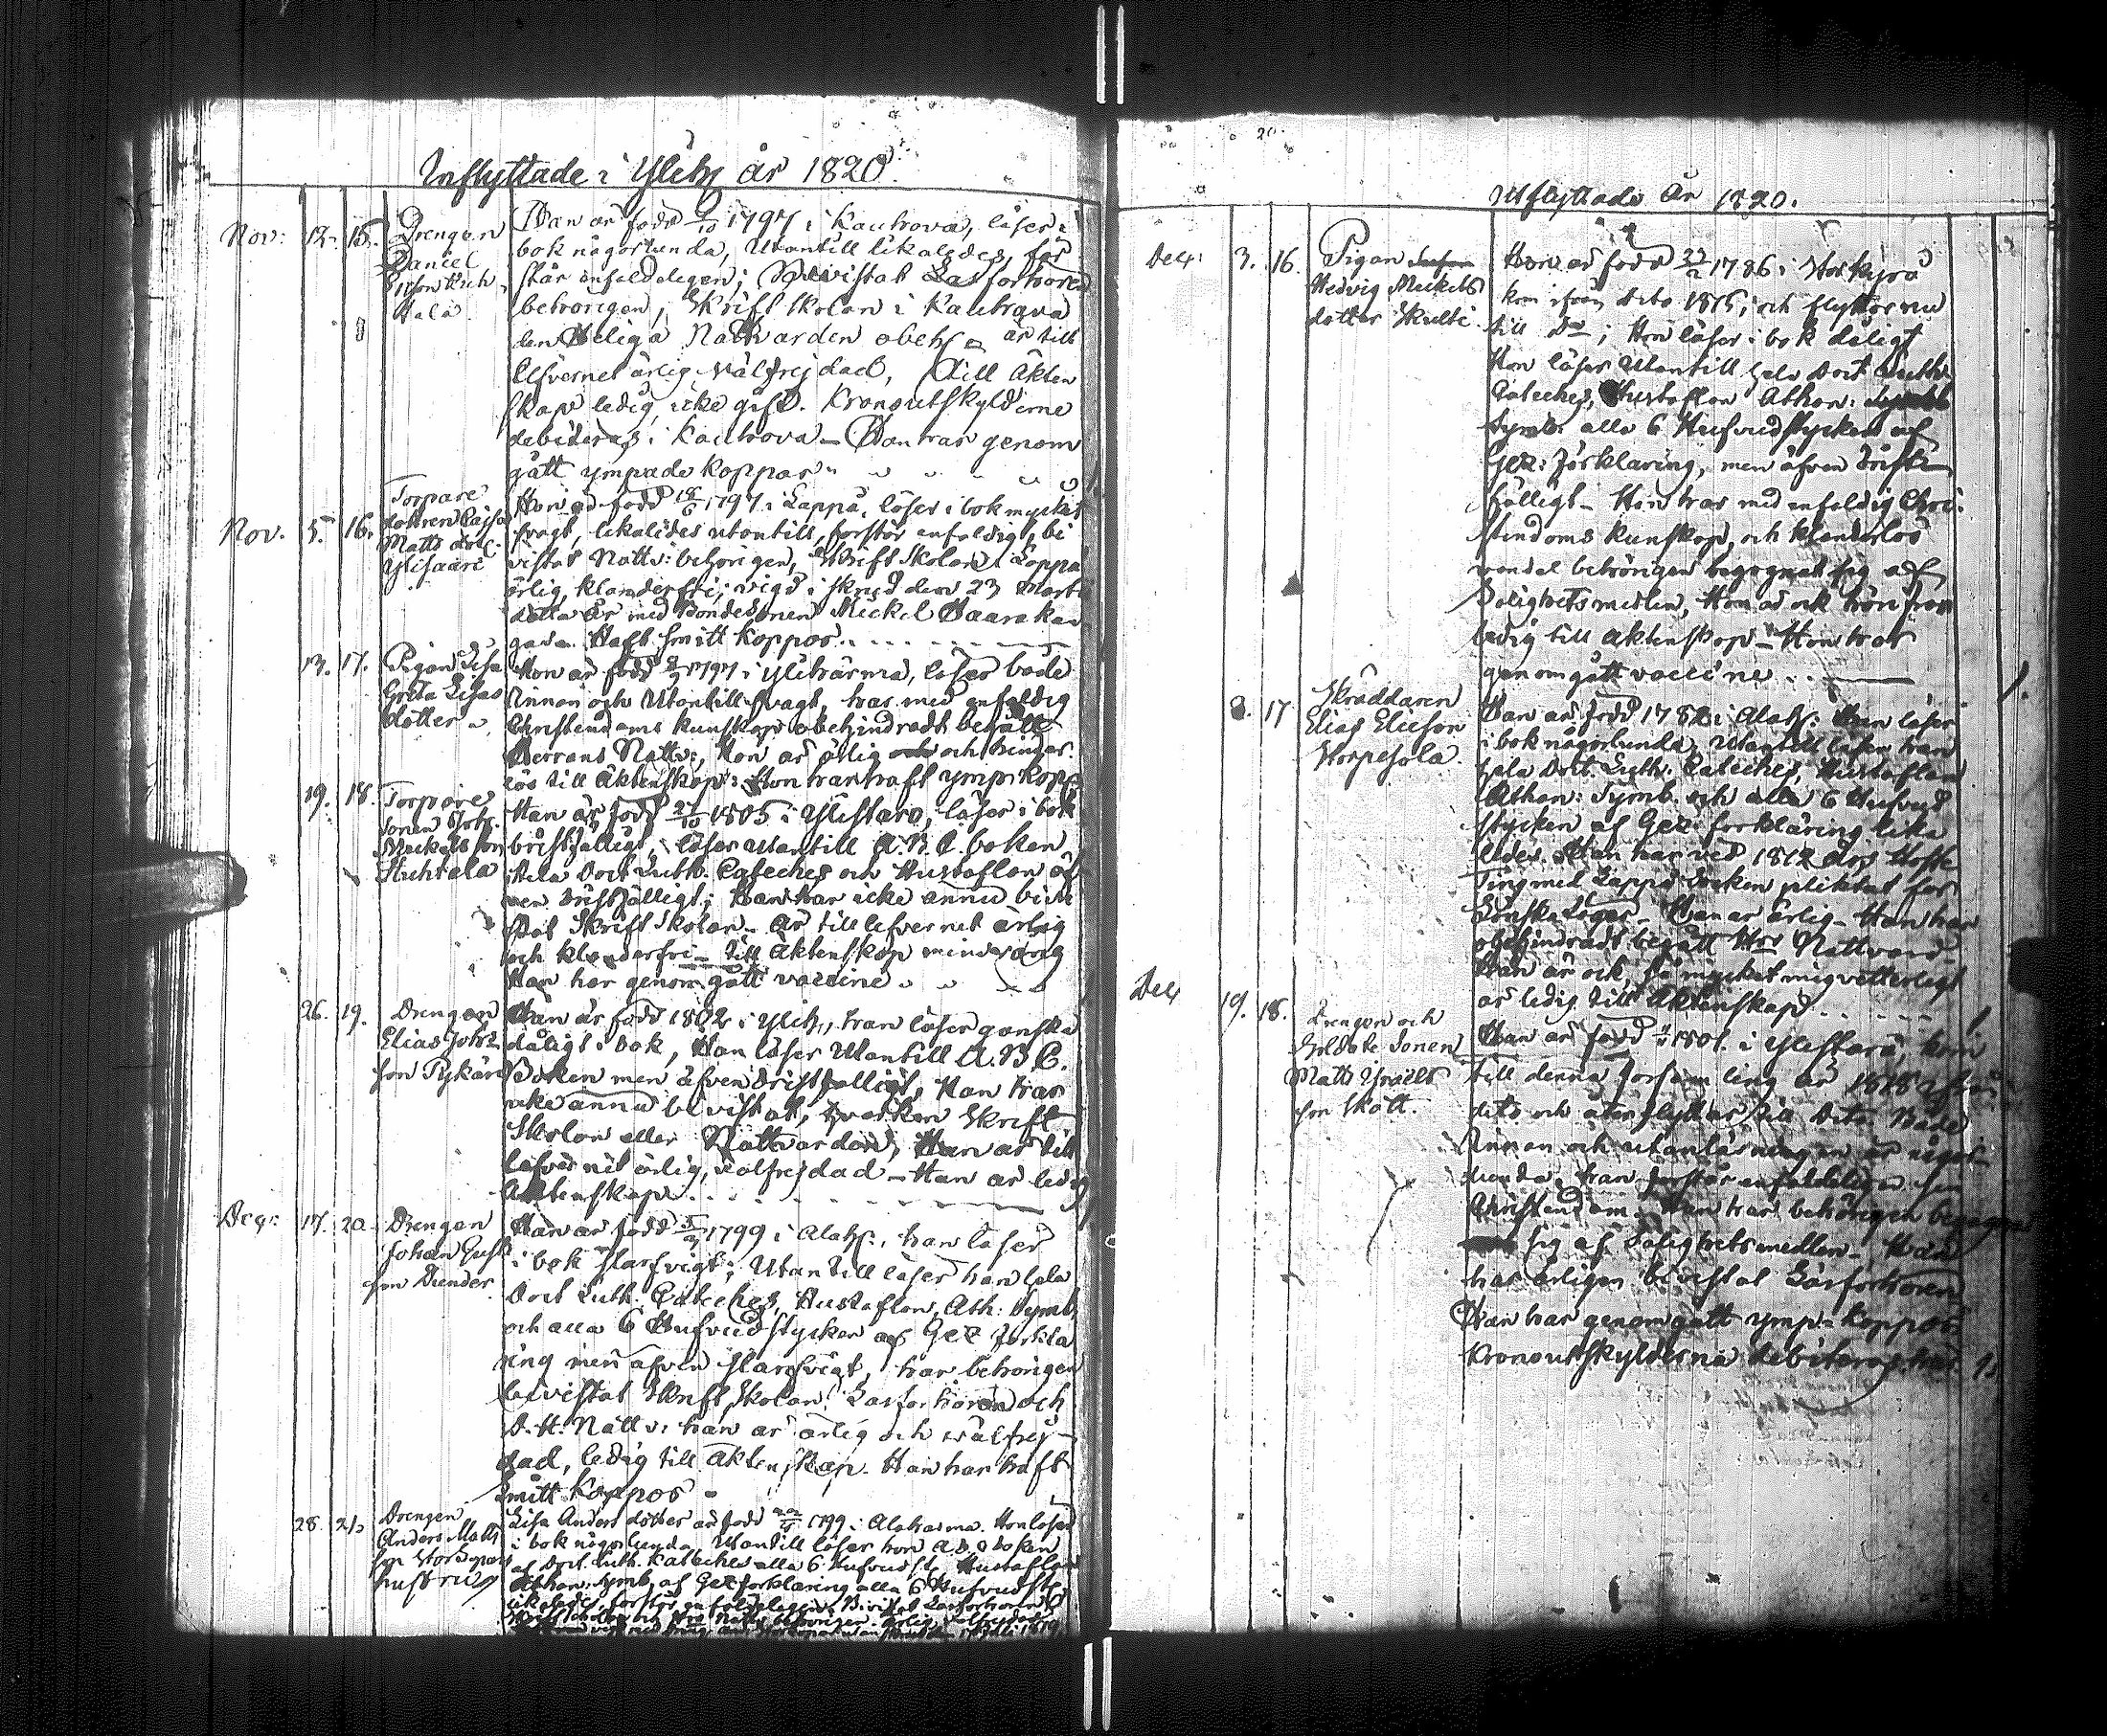 Inflyttade i Ylih: år 1820.
Nov: 12. 15. Drengen
Daniel
Hala
Han är född 1797 i Kauhava, läser i
bok någorlunda, utantill likaledes, för
står enfaldeligen; Bevistat Läsförhören
behörigen, Skrift skolan i Kauhava
den Heliga Nattvarden obeh: är till
lefvernet ärlig välfrejdad, till äkten
skap ledig, icke gift. Kronoutskylderne
debiteras i Kauhava – Han har genom
gått ympade koppor
Nov. 5. 16. Torpare
dottren Cajsa
Matts dott:
Ylisaari
Hon är född 18/6 1797 i Lappå, läser i bok mycket
svagt, likaledes utantill, förstår enfaldigt, bi
vistat Nattv: behörigen, Skrift Skolan i Lappå
ärlig, klanderfri, vigd i skrud den 23 Martii
detta år med Bondesonen Mickel Saarakan
gada. Haft smitt koppor
13. 17. Pigan Lisa
Greta Lisas
dotter
Hon är född 1797 i Ylihärmä, läser både
innan och utantill svagt, har med enfaldig
Christendoms kunskap obehindradt begått
Herrans Nattv:, Hon är ärlig och hinder
lös till äktenskap: Hon har haft ymp: kopp
19. 18. Torpare
sonen Joh:
Mickelsson
Huhtala
Han är född 1805 i Ylistaro, läser i bok
bristfälligt, läser utantill A.B.C. boken
Hela Doct Luth. Cateches och Hustaflan äf
ven bristfälligt; Han har icke ännu bivi
stat Skrift Skolan – är till lefvernet ärlig
och klanderfri – till äktenskap minderårig
Han har genomgått vaccine
26. 19. Drengen
Elias Johans
son Pykäri
Han är född 1802 i Ylih:, han läser ganska
dåligt i bok, Han läser utantill A.B.C.
Boken men äfven bristfälligt, Han har
icke ännu bivistat, hvarken Skrift
Skolan eller Nattvarden, Han är till
lefvernet ärlig, välfrejdad – Han är ledig
äktenskap
Decr: 17. 20. Drengen
Johan Gust:
son Dunder
Han är född 1799 i Alah:, han läser
i bok slarfvigt; Utantill läser han hela
Doct Luth. Cateches, Hustaflan, Ath: Symb:
och alla 6 Hufvudstycken af Gez förkla
ring men äfven slarfvigt, har behörigen
bivistat Skrift Skolan, Läsförhören och
D. H. Nattv: han är ärlig och välfrej
dad, ledig till äktenskap. Han har haft
Smitt Koppor
28. 21. Drengen
Anders Matts
son
hustru
Lisa Anders dotter är född 1799 i Alahärmä. Hon läser
i bok någorlunda, Utantill läser hon A.B.C boken
af Doct. Luth. Kateches alla 6 Hufvudst: Hustaflan
Athan. Symb. af Gez förklaring alla 6 Hufvudst:
20.
Utflyttade År 1820.
Dec: 3. 16. Pigan
Hedvig Mickels
dotter Skulti
Hon är född 1786 i Storkyro
kom ifrån dito 1815, och flyttar nu
till Do; Hon läser i bok dåligt
Hon läser Utantill hela Doct Luth:
Cateches, Hustaflan Athan:
Symb: alla 6 Hufvudstycken af
Gez: förklaring, men äfven brist
fälligt – Hon har med enfaldig Chri
stendoms kunskap, och klanderlös
vandel behörigen begagnat sig af
Salighetsmedlen, Hon är ock
ledig till äktenskap – Hon har
genomgått vaccine
8. 17 Skräddaren
Elias Eliesson
Han är född 1782 i Alah:. Han läser
i bok någorlunda, Utantill läser han
hela Doct. Luth. Cateches, Hustaflan
Athan: Symb. och alla 6 Hufvud
stycken af Gez: förklaring lika
ledes. Han har vid 1812 års Höste
Ting med Lappå Socken pliktat för
Lönskaläger – Han är ärlig – Han har
obehindradt begått Hrs Nattvard
Han är ock, så mycket mig vetterligt
är ledig till äktenskap
Dec 19. 18. Drengen och
Soldate sonen
Matts Israels
son Skott.
Han är född 1801. i Ylistaro, kom
till denna Församling år 1818 ifrån
dito och återflyttar till Dito Både
innan och utanläsningen är någor
lunda, han förstår enfaldeligen sin
Christendom. Han har behörigen begagnat
sig af Salighetsmedlen – Han
har årligen bivistat Läsförhören
Han har genomgått ymp: koppor
Kronoutskylderna debiteras här.